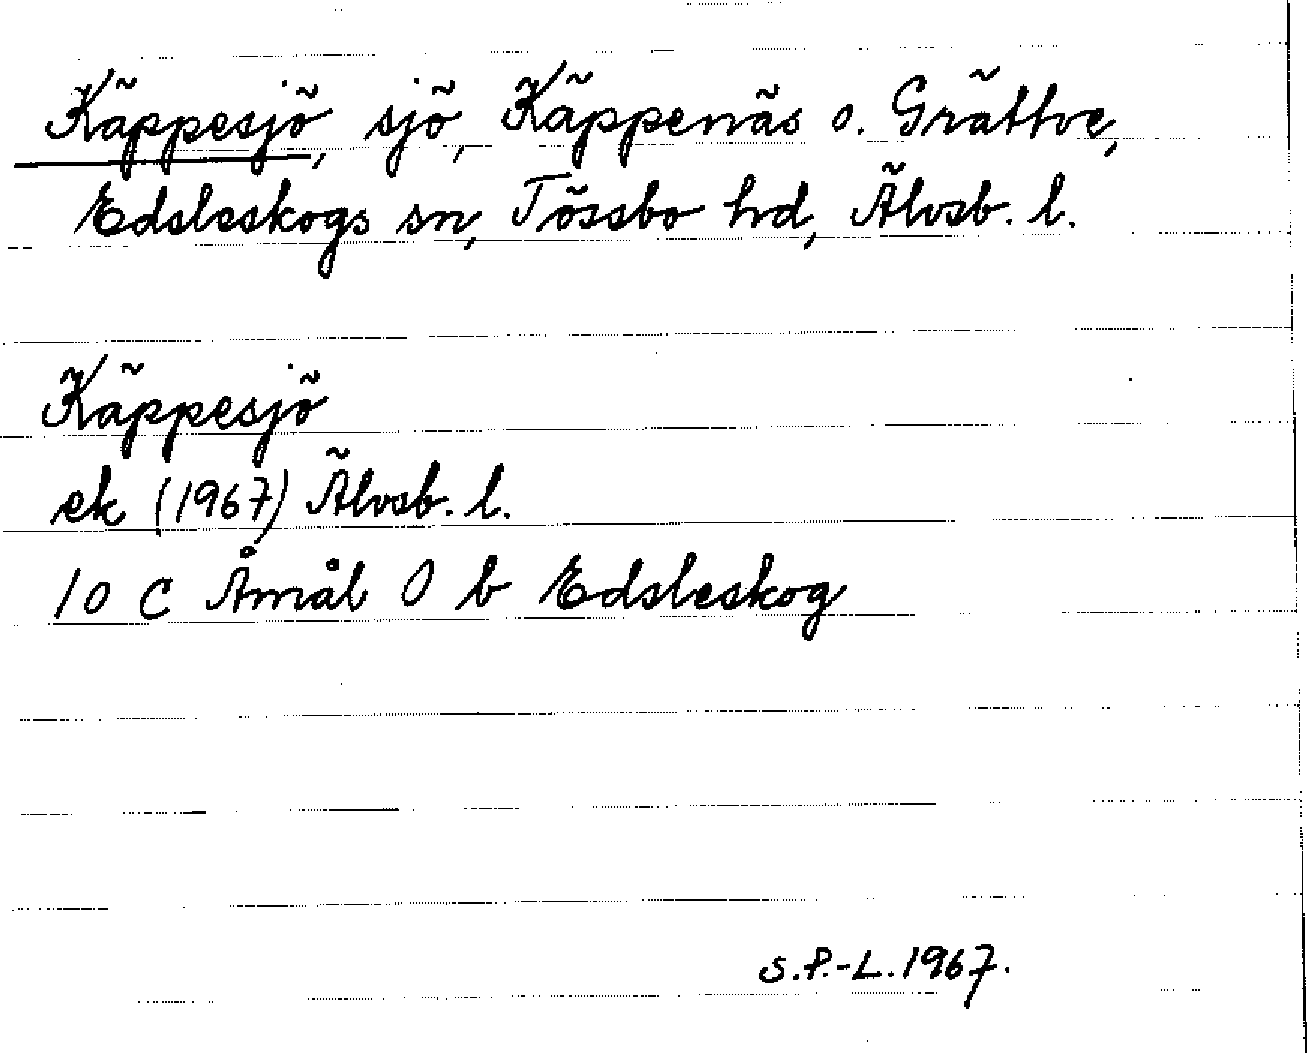 Käppesjö, sjö, Käppenäs o. Grättve,
Edsleskogs sn, Tössbo hd, Älvsb. l.
Käppesjö
ek (1967) Älvsb. l.
10 C Åmål O b Edsleskog
S.P.-L. 1967.